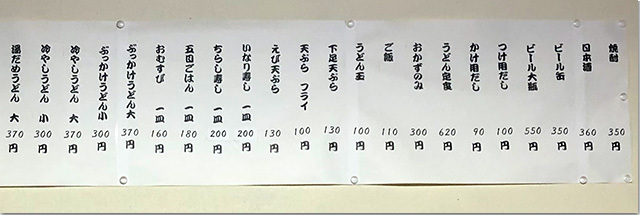 焼酎 350円
日本酒 360円
ビール缶 350円
ビール大瓶 550円
つけ用だし 100円
かけ用だし 90円
うどん定食 620円
おかずのみ 300円
ご飯 110円
うどん玉 100円
下足天ぷら 130円
天ぷら フライ 100円
えび天ぷら 130円
いなり寿し 一皿 200円
ちらし寿し 一皿 200円
五目ごはん 一皿 180円
おむすび 一皿 160円
ぶっかけうどん大 370円
ぶっかけうどん小 300円
冷やしうどん 大 370円
冷やしうどん 小 300円
湯だめうどん 大 370円